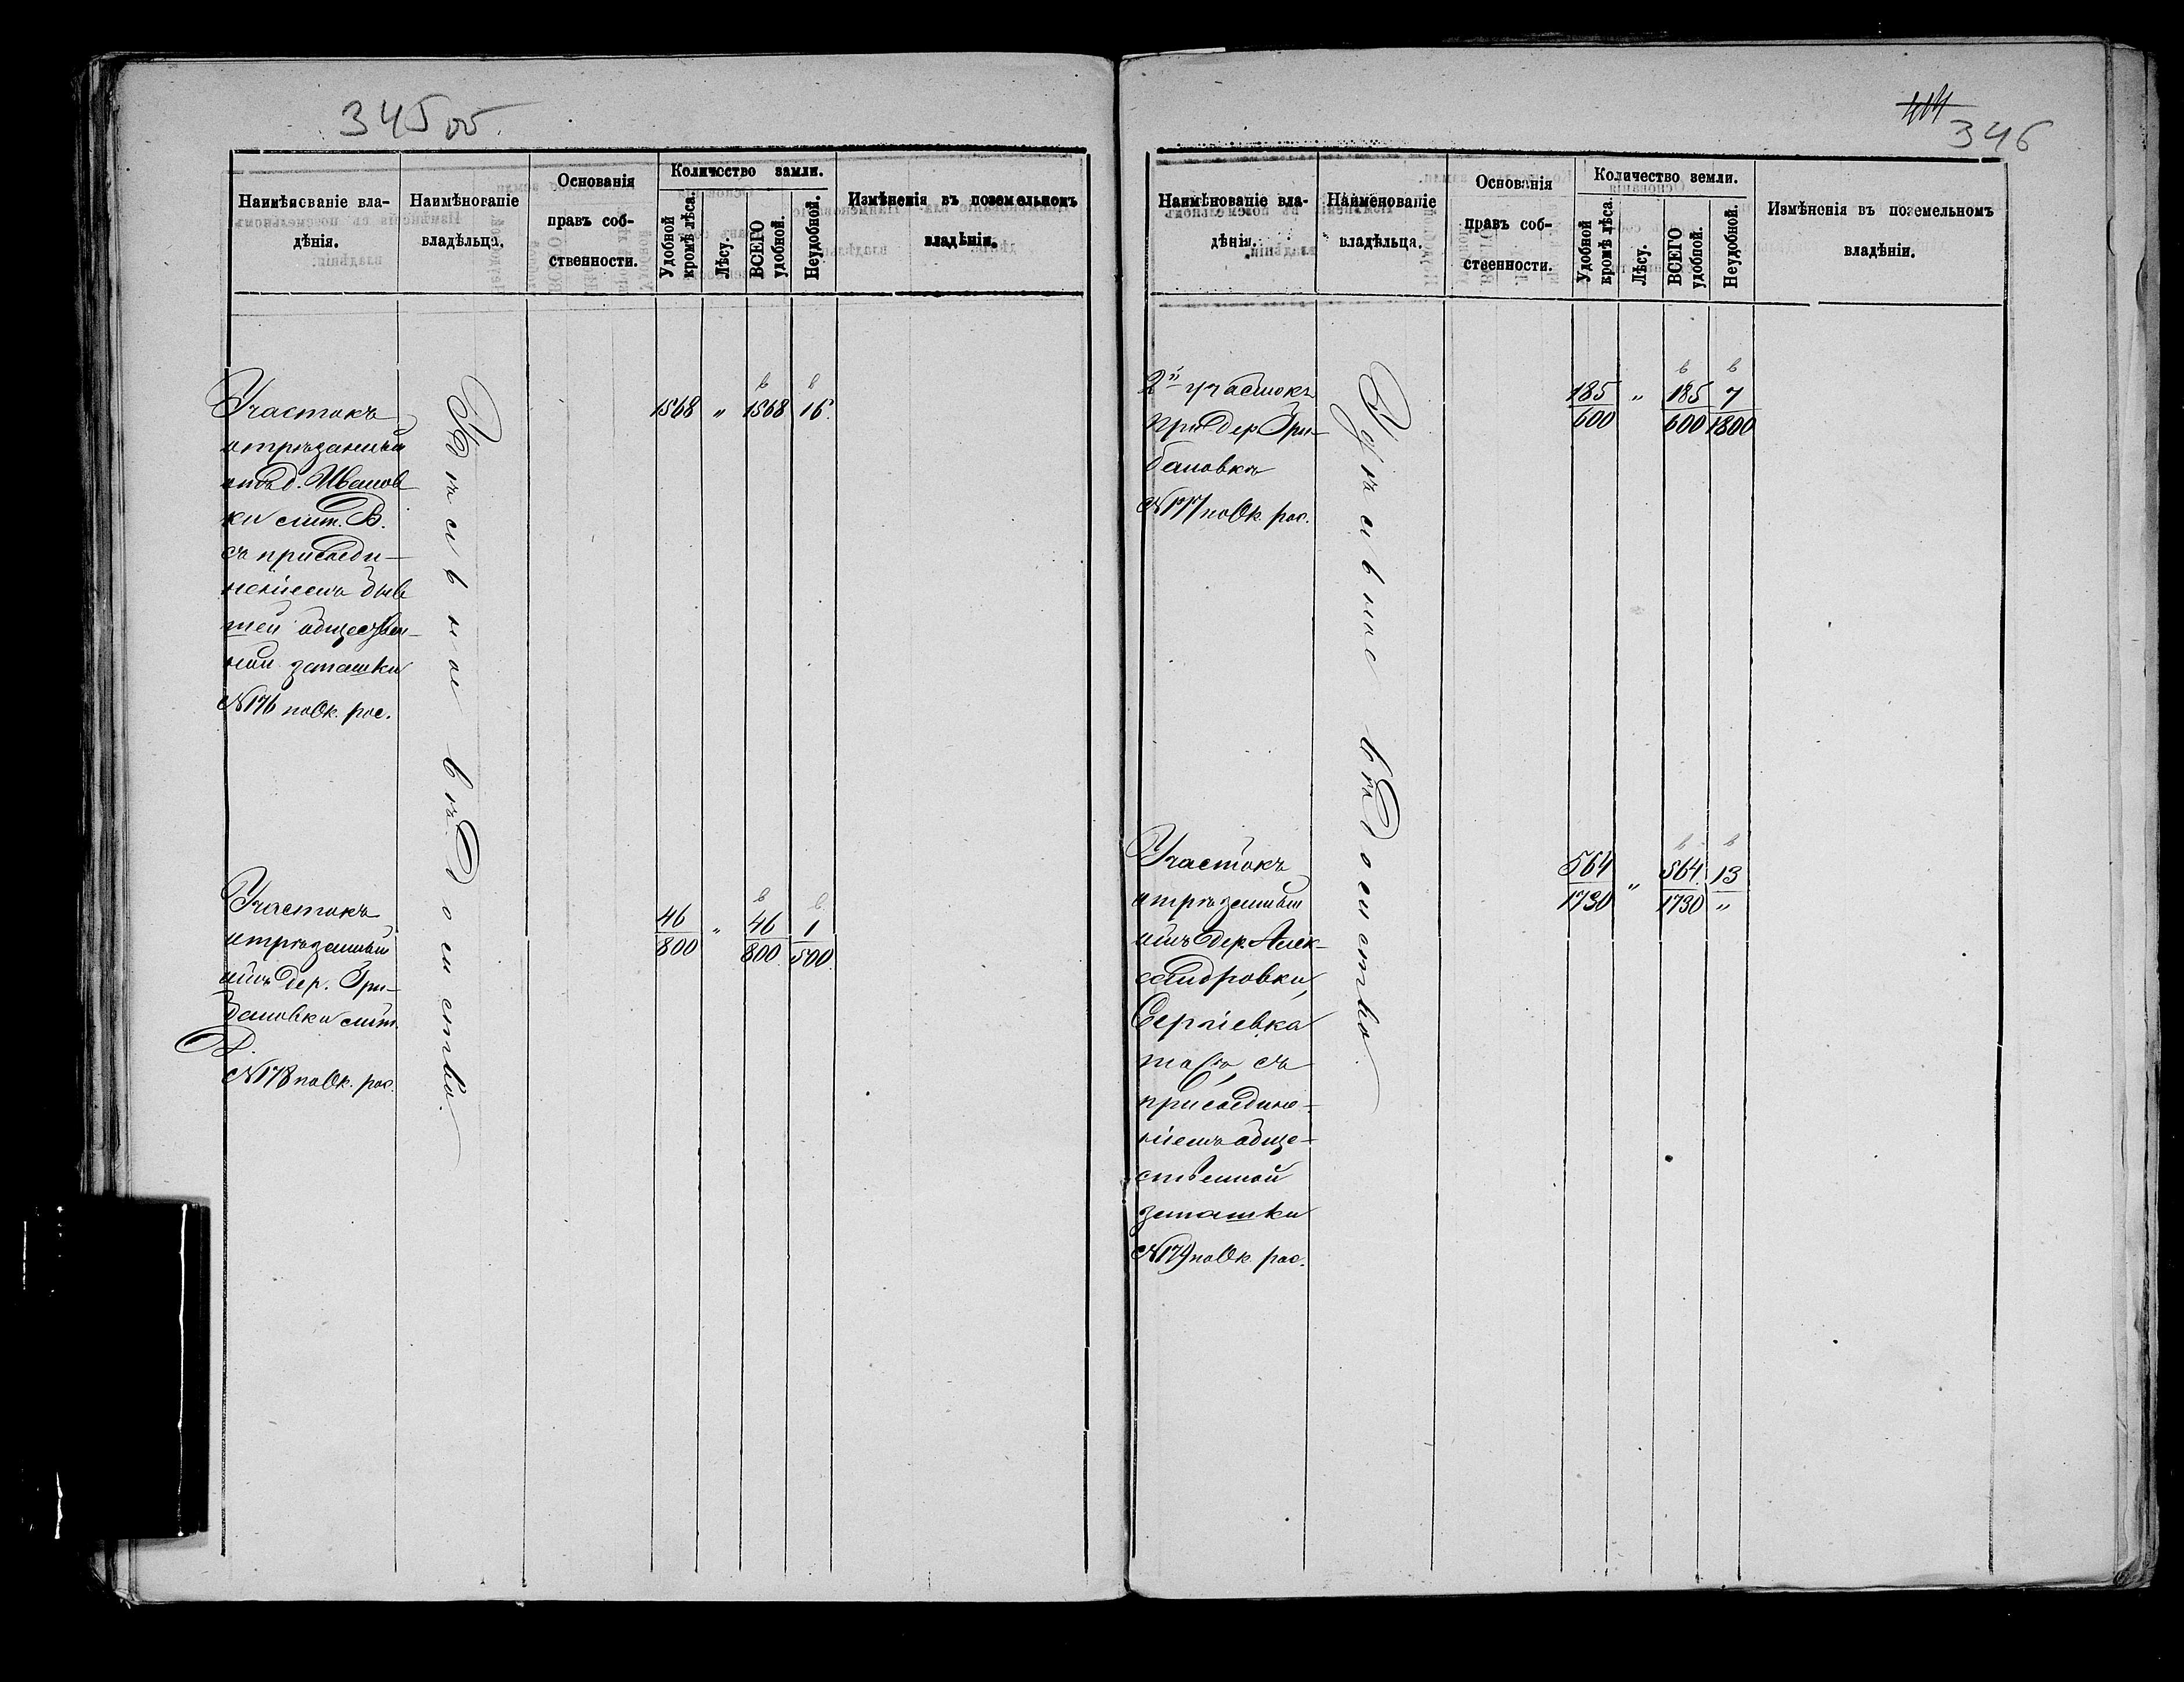 345об.
Наименованіе вла-
дѣнія.
Наимѣнованіе
владѣльца.
Основанія
правъ соб-
ственности.
Количество земли.
Удобной
кромѣ лѣса.
Лѣсу.
ВСЕГО
удобной.
Неудобной.
Измѣненія въ поземельномъ
владѣніи.
Участокъ
отрѣзанный
отъ д. Иванов
ки лит. В.
съ присоеди-
неніемъ быв
шей обществен-
ной запашки
№ 176 по Ок. рос.
1568 " 1568 16.
Участокъ
отрѣзанный
отъ дер. Гри-
бановки лит.
Д.
№ 178 по Ок. рос.
46 " 46 1
800 800 500
вѣдомства.
414
346
Наимѣнованіе вла-
дѣнія.
Наименованіе
владѣльца.
Основанія
правъ соб-
ственности.
Количество земли.
Удобной
кромѣ лѣса.
Лѣсу.
ВСЕГО
удобной.
Неудобной.
Измѣненія въ поземельномъ
владѣніи.
2й участокъ
при дер. Гри-
бановкѣ
№ 177 по Ок. рос.
185 " 185 7
600 600 1800
Участокъ
отрѣзанный
отъ дер. Алек-
сандровки,
Сергіевка
тожъ, съ
присоедине-
ніемъ обще-
ственной
запашки
№ 179 по Ок. рос.
564 " 564 13
1730 1730 "
вѣдомства.